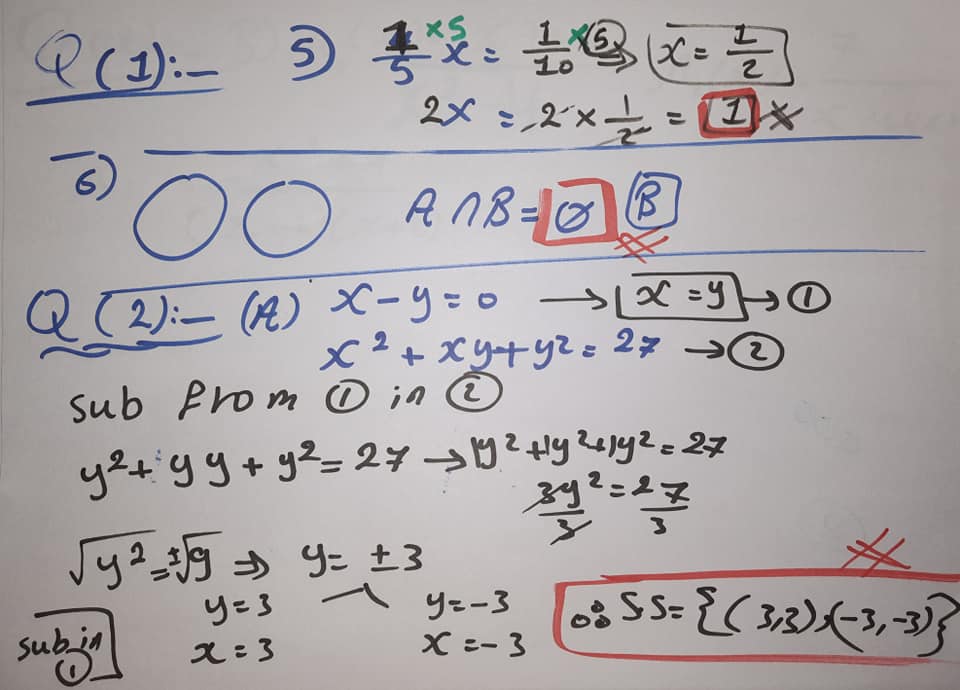 Q(1):- 5) 1/5 ×5 x = 1/10 ×(5) ⇒ x = 1/2
2x = 2 × 1/2 = 1
6) A ∩ B = ∅ B
Q(2):- (A) x - y = 0 → x = y → ①
x² + xy + y² = 27 → ②
sub from ① in ②
y² + y y + y² = 27 → 1y² + 1y² + 1y² = 27
3y²/3 = 27/3
√y² = ±√9 ⇒ y = ± 3
y = 3 y = -3
sub in ① x = 3 x = -3
∴ S.S = {(3,3), (-3,-3)}